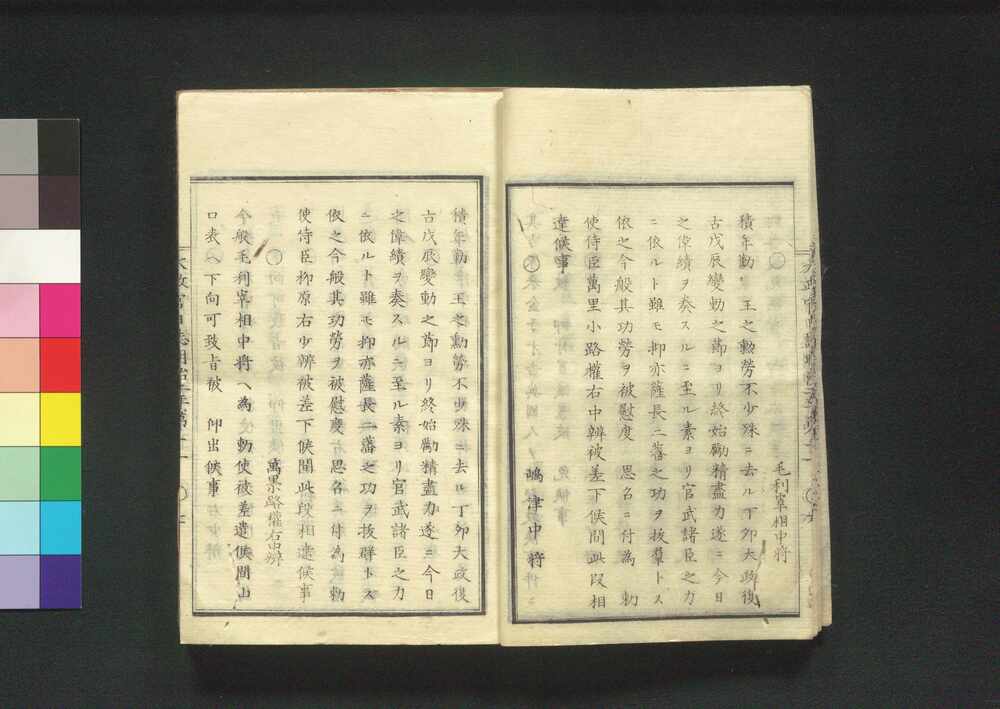 毛利宰相中将
積年勤　王之勲勞不少殊ニ去ル丁夘大政復
古戊辰變動之節ヨリ終始勵精盡力遂ニ今日
之偉績ヲ奏スルニ至ル素ヨリ官武諸臣之力
ニ依ルト雖モ抑亦薩長二藩之功ヲ抜羣トス
依之今般其功勞ヲ被慰度　思召ニ付為　勅
使侍臣萬里小路權右中辨被差下候間此段相
達候事
嶋津中将
積年勤　王之勲勞不少殊ニ去ル丁夘大政復
古戊辰變動之節ヨリ終始勵精盡力遂ニ今日
之偉績ヲ奏スルニ至ル素ヨリ官武諸臣之力
ニ依ルト雖モ抑亦薩長二藩之功ヲ抜群トス
依之今般其功勞ヲ被慰度　思召ニ付為　勅
使侍臣柳原右少辨被差下候間此段相達候事
萬里路權右中辨
今般毛利宰相中将ヘ為　勅使被差遣候間山
口表ヘ下向可致旨被　仰出候事